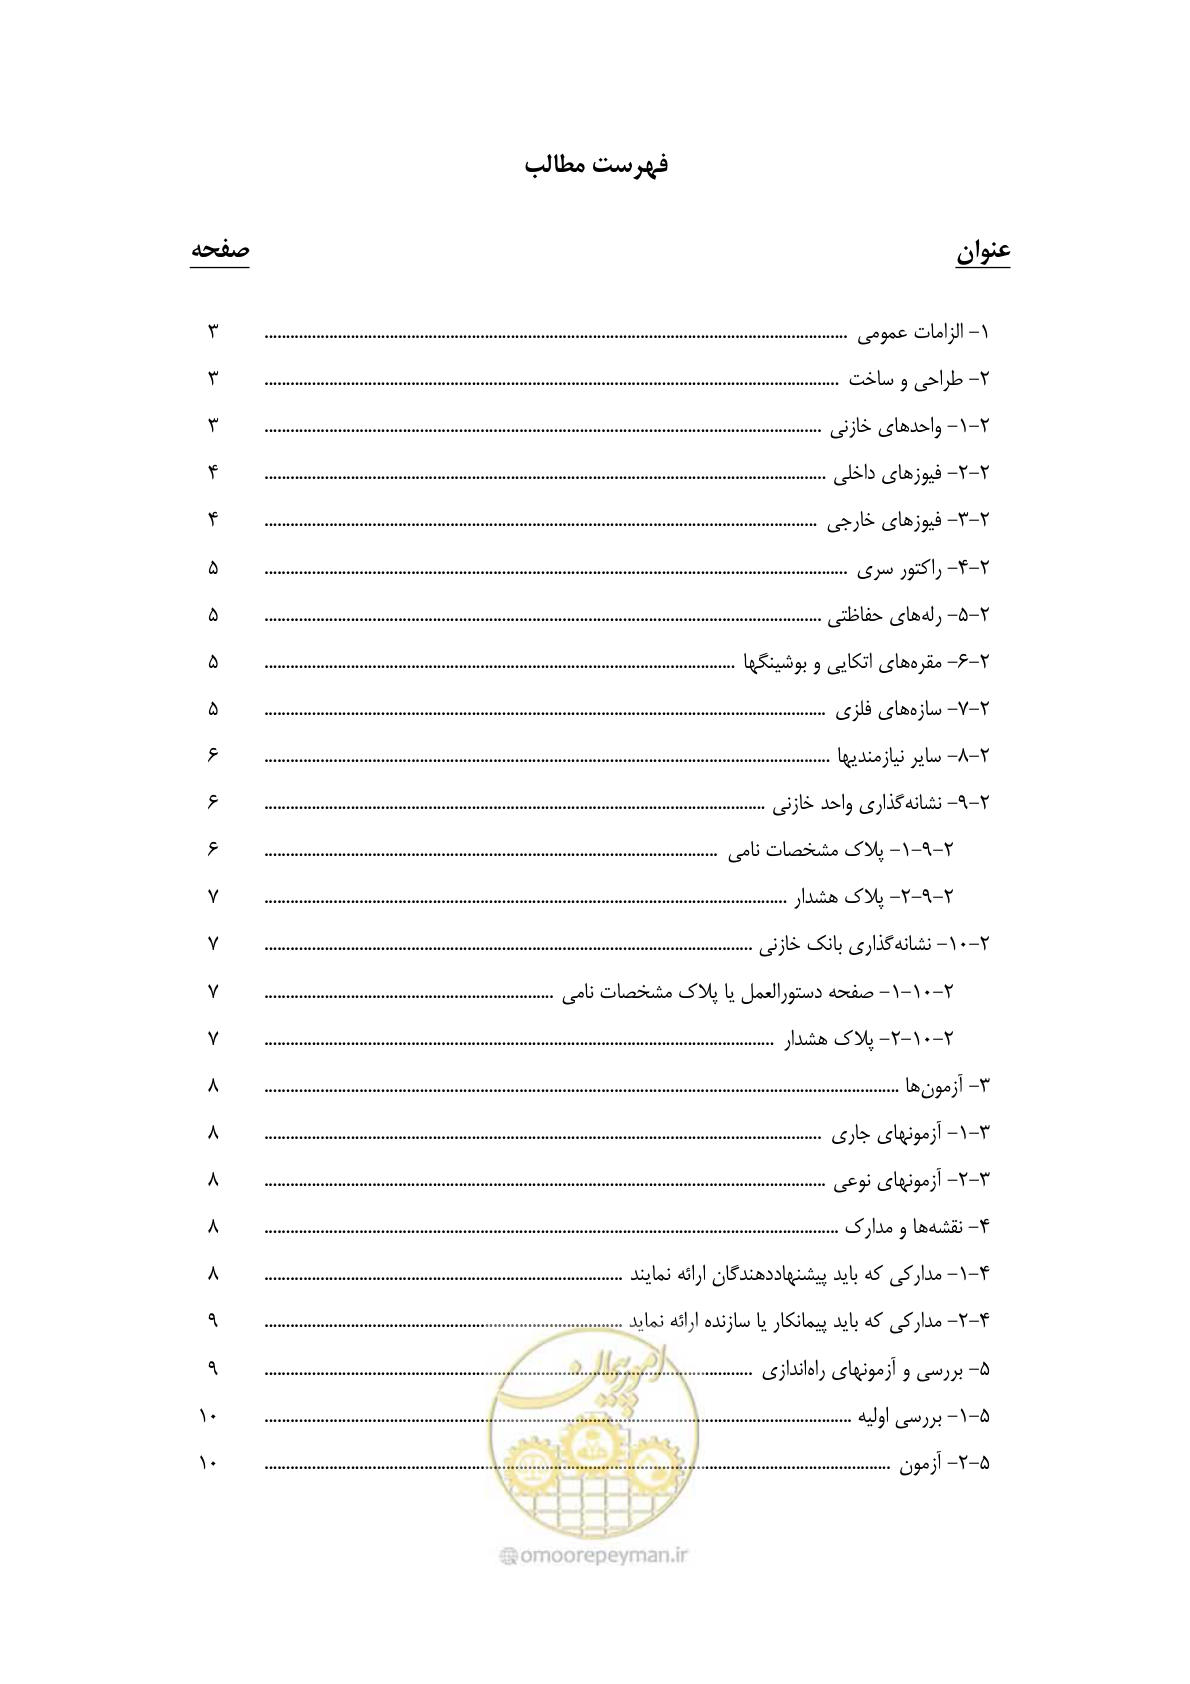 فهرست مطالب
عنوان صفحه
۱- الزامات عمومی ........ ۳
۲- طراحی و ساخت ........ ۳
۲-۱- واحدهای خازنی ........ ۳
۲-۲- فیوزهای داخلی ........ ۴
۲-۳- فیوزهای خارجی ........ ۴
۲-۴- راکتور سری ........ ۵
۲-۵- رله‌های حفاظتی ........ ۵
۲-۶- مقره‌های اتکایی و بوشینگها ........ ۵
۲-۷- سازه‌های فلزی ........ ۵
۲-۸- سایر نیازمندیها ........ ۶
۲-۹- نشانه‌گذاری واحد خازنی ........ ۶
۲-۹-۱- پلاک مشخصات نامی ........ ۶
۲-۹-۲- پلاک هشدار ........ ۷
۲-۱۰- نشانه‌گذاری بانک خازنی ........ ۷
۲-۱۰-۱- صفحه دستورالعمل یا پلاک مشخصات نامی ........ ۷
۲-۱۰-۲- پلاک هشدار ........ ۷
۳- آزمون‌ها ........ ۸
۳-۱- آزمونهای جاری ........ ۸
۳-۲- آزمونهای نوعی ........ ۸
۴- نقشه‌ها و مدارک ........ ۸
۴-۱- مدارکی که باید پیشنهاددهندگان ارائه نمایند ........ ۸
۴-۲- مدارکی که باید پیمانکار یا سازنده ارائه نماید ........ ۹
۵- بررسی و آزمونهای راه‌اندازی ........ ۹
۵-۱- بررسی اولیه ........ ۱۰
۵-۲- آزمون ........ ۱۰
امور پیمان
@omoorepeyman.ir